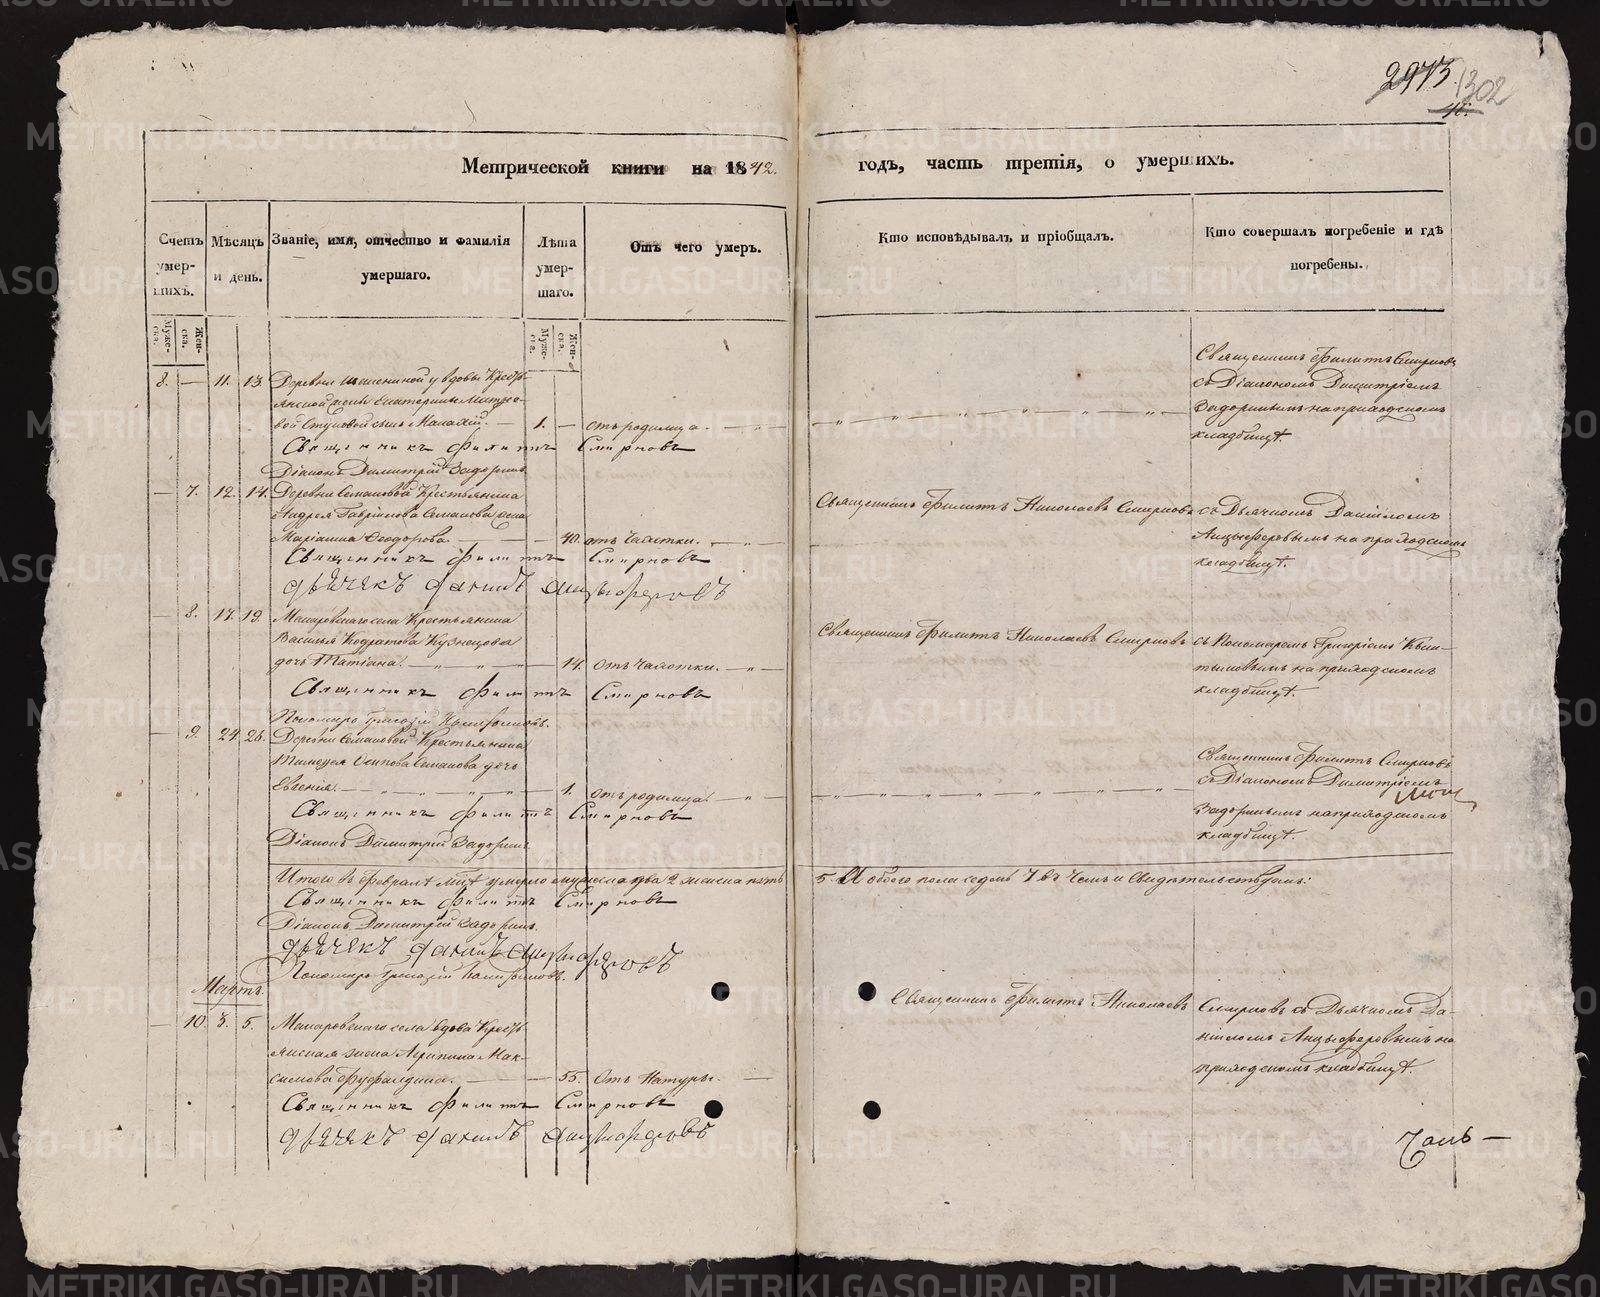 2973 1302
Метрической книги на 1842. годъ, часть третія, о умершихъ.
Счетъ умер-шихъ.
Мѣсяцъ и день.
Званіе, имя, отчество и фамилія умершаго.
Лѣта умер-шаго.
Отъ чего умеръ.
Кто исповѣдывалъ и пріобщалъ.
Кто совершалъ погребеніе и гдѣ погребены.
Муже-ска.
Жен-ска.
Муже-ска.
Жен-ска.
Священникъ Филиппъ Смирновъ
8. — 11. 13. Деревни у вдовы Крестъ-
съ Діакономъ Димитріемъ
янской жены Екатерины
Задоринымъ на приходскомъ
сынъ Малахій. — 1. — отъ родимца.
кладбищѣ.
Священникъ Филиппъ Смирновъ
Діаконъ Димитрій Задоринъ
— 7. 12. 14. Деревни Семановой Крестьянина
Андрея Гаврилова Семанова жена
Священникъ Филиппъ Николаевъ Смирновъ съ Дьячкомъ Даніиломъ
Маріанна Ѳеодорова. — 40. отъ чахотки.
Анцыферовымъ на приходскомъ
кладбищѣ.
Священникъ Филиппъ Смирновъ
Дьячекъ Данилъ Анцыферовъ
— 8. 17. 19. Макаровскаго села Крестьянина
Василья Кодратова Кузнецова
Священникъ Филиппъ Николаевъ Смирновъ съ Пономаремъ Григоріемъ
дочь Татіана. — 14. отъ чахотки.
на приходскомъ
кладбищѣ.
Священникъ Филиппъ Смирновъ
Пономарь Григорій
— 9. 24. 26. Деревни Семановой Крестьянина
Тимоѳея Осипова Семанова дочь
Священникъ Филиппъ Смирновъ
съ Діакономъ Димитріемъ
Евгенія. — 1. отъ родимца.
Задоринымъ на приходскомъ
кладбищѣ.
Священникъ Филиппъ Смирновъ
Діаконъ Димитрій Задоринъ
Итого въ Февралѣ мцѣ умерло мужеска два 2 женска пять 5. А обоего пола седмь 7 въ чемъ и свидѣтельствуемъ:
Священникъ Филиппъ Смирновъ
Діаконъ Димитрій Задоринъ.
Дьячекъ Данилъ Анцыферовъ
Пономарь Григорій
Мартъ.
Священникъ Филиппъ Николаевъ Смирновъ съ Дьячкомъ Да-
— 10. 3. 5. Макаровскаго села вдова Крестъ-
ніиломъ Анцыферовымъ на
янская жена Агрипина Мак-
приходскомъ кладбищѣ.
симова — 55. Отъ Натуры.
Священникъ Филиппъ Смирновъ
Дьячекъ Данилъ Анцыферовъ
METRIKI.GASO-URAL.RU